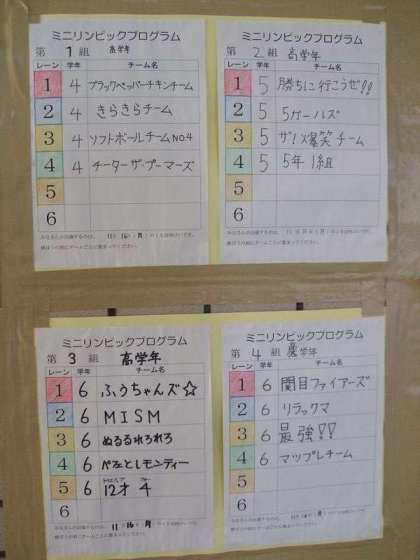 ミニリンピックプログラム
第 1 組 高学年
レーン 学年 チーム名
1 4 ブラックペッパーチキンチーム
2 4 きらきらチーム
3 4 ソフトボールチームNO.4
4 4 チーターザ・ブーマーズ
5
6
ミニリンピックプログラム
第 2 組 高学年
レーン 学年 チーム名
1 5 勝ちに行こうぜ!!
2 5 5ガールズ
3 5 ザ!爆笑チーム
4 5 5年1組
5
6
ミニリンピックプログラム
第 3 組 高学年
レーン 学年 チーム名
1 6 ふうちゃんズ☆
2 6 MISM
3 6 ぬるるれろれろ
4 6 モンティー
5 6 12才 4
6
ミニリンピックプログラム
第 4 組 高学年
レーン 学年 チーム名
1 6 関目ファイアーズ
2 6 リラックマ
3 6 最強!!
4 6 マップレチーム
5
6